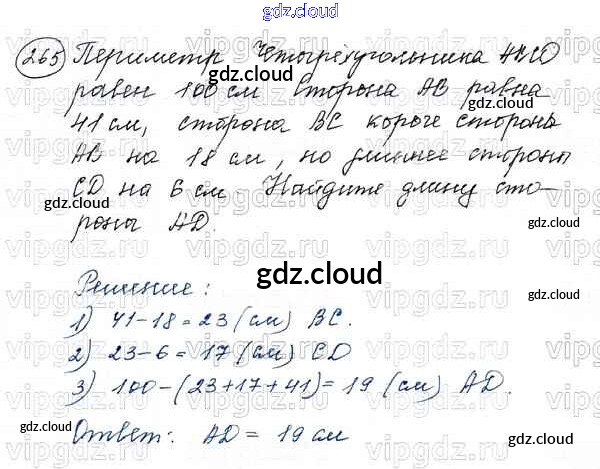 gdz.cloud
265 Периметр четырёхугольника ABCD
равен 100 см Сторона AB равна
41 см, сторона BC короче стороны
AB на 18 см, но длиннее стороны
CD на 6 см. Найдите длину сто-
роны AD.
gdz.cloud
gdz.cloud
gdz.cloud
gdz.cloud
gdz.cloud
Решение:
1) 41-18=23 (см) BC.
2) 23-6=17 (см) CD
3) 100-(23+17+41)=19 (см) AD.
gdz.cloud
gdz.cloud
Ответ: AD = 19 см
gdz.cloud
gdz.cloud